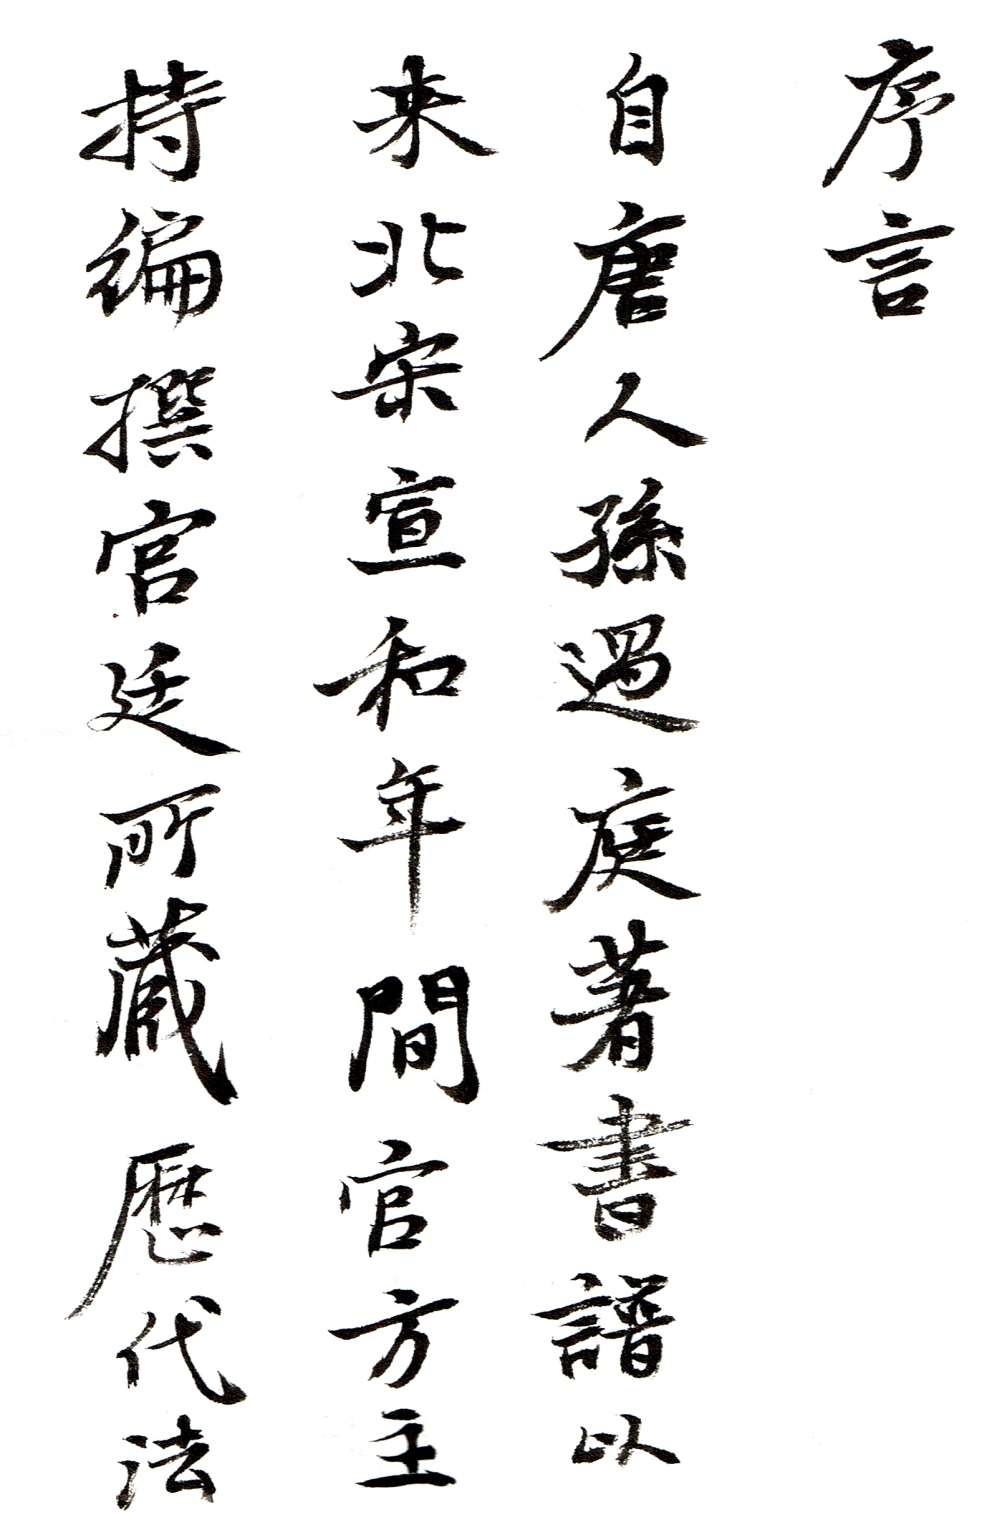 序言
自唐人孫過庭著書譜以
来北宋宣和年間官方主
持編撰官廷所蔵歷代法